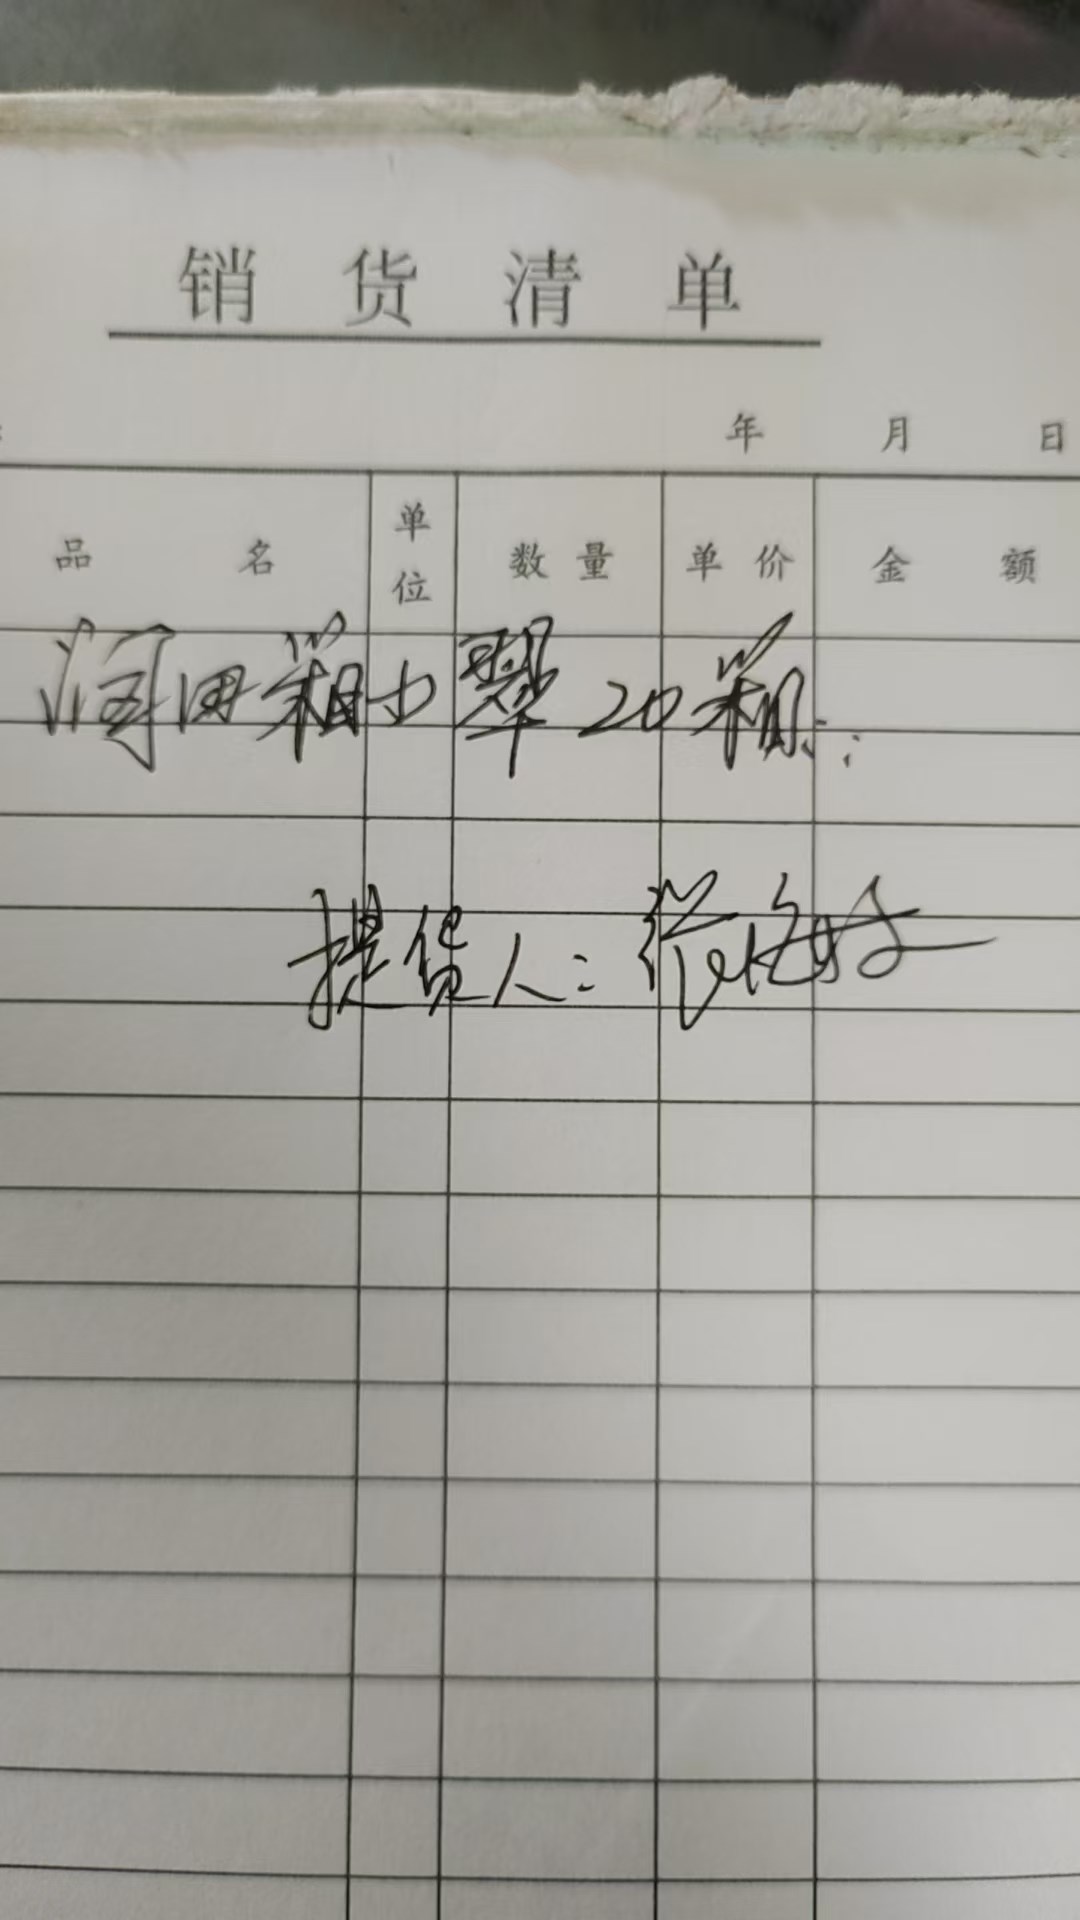 销货清单
年 月 日
品名 单位 数量 单价 金额
润田箱小翠20箱
提货人: